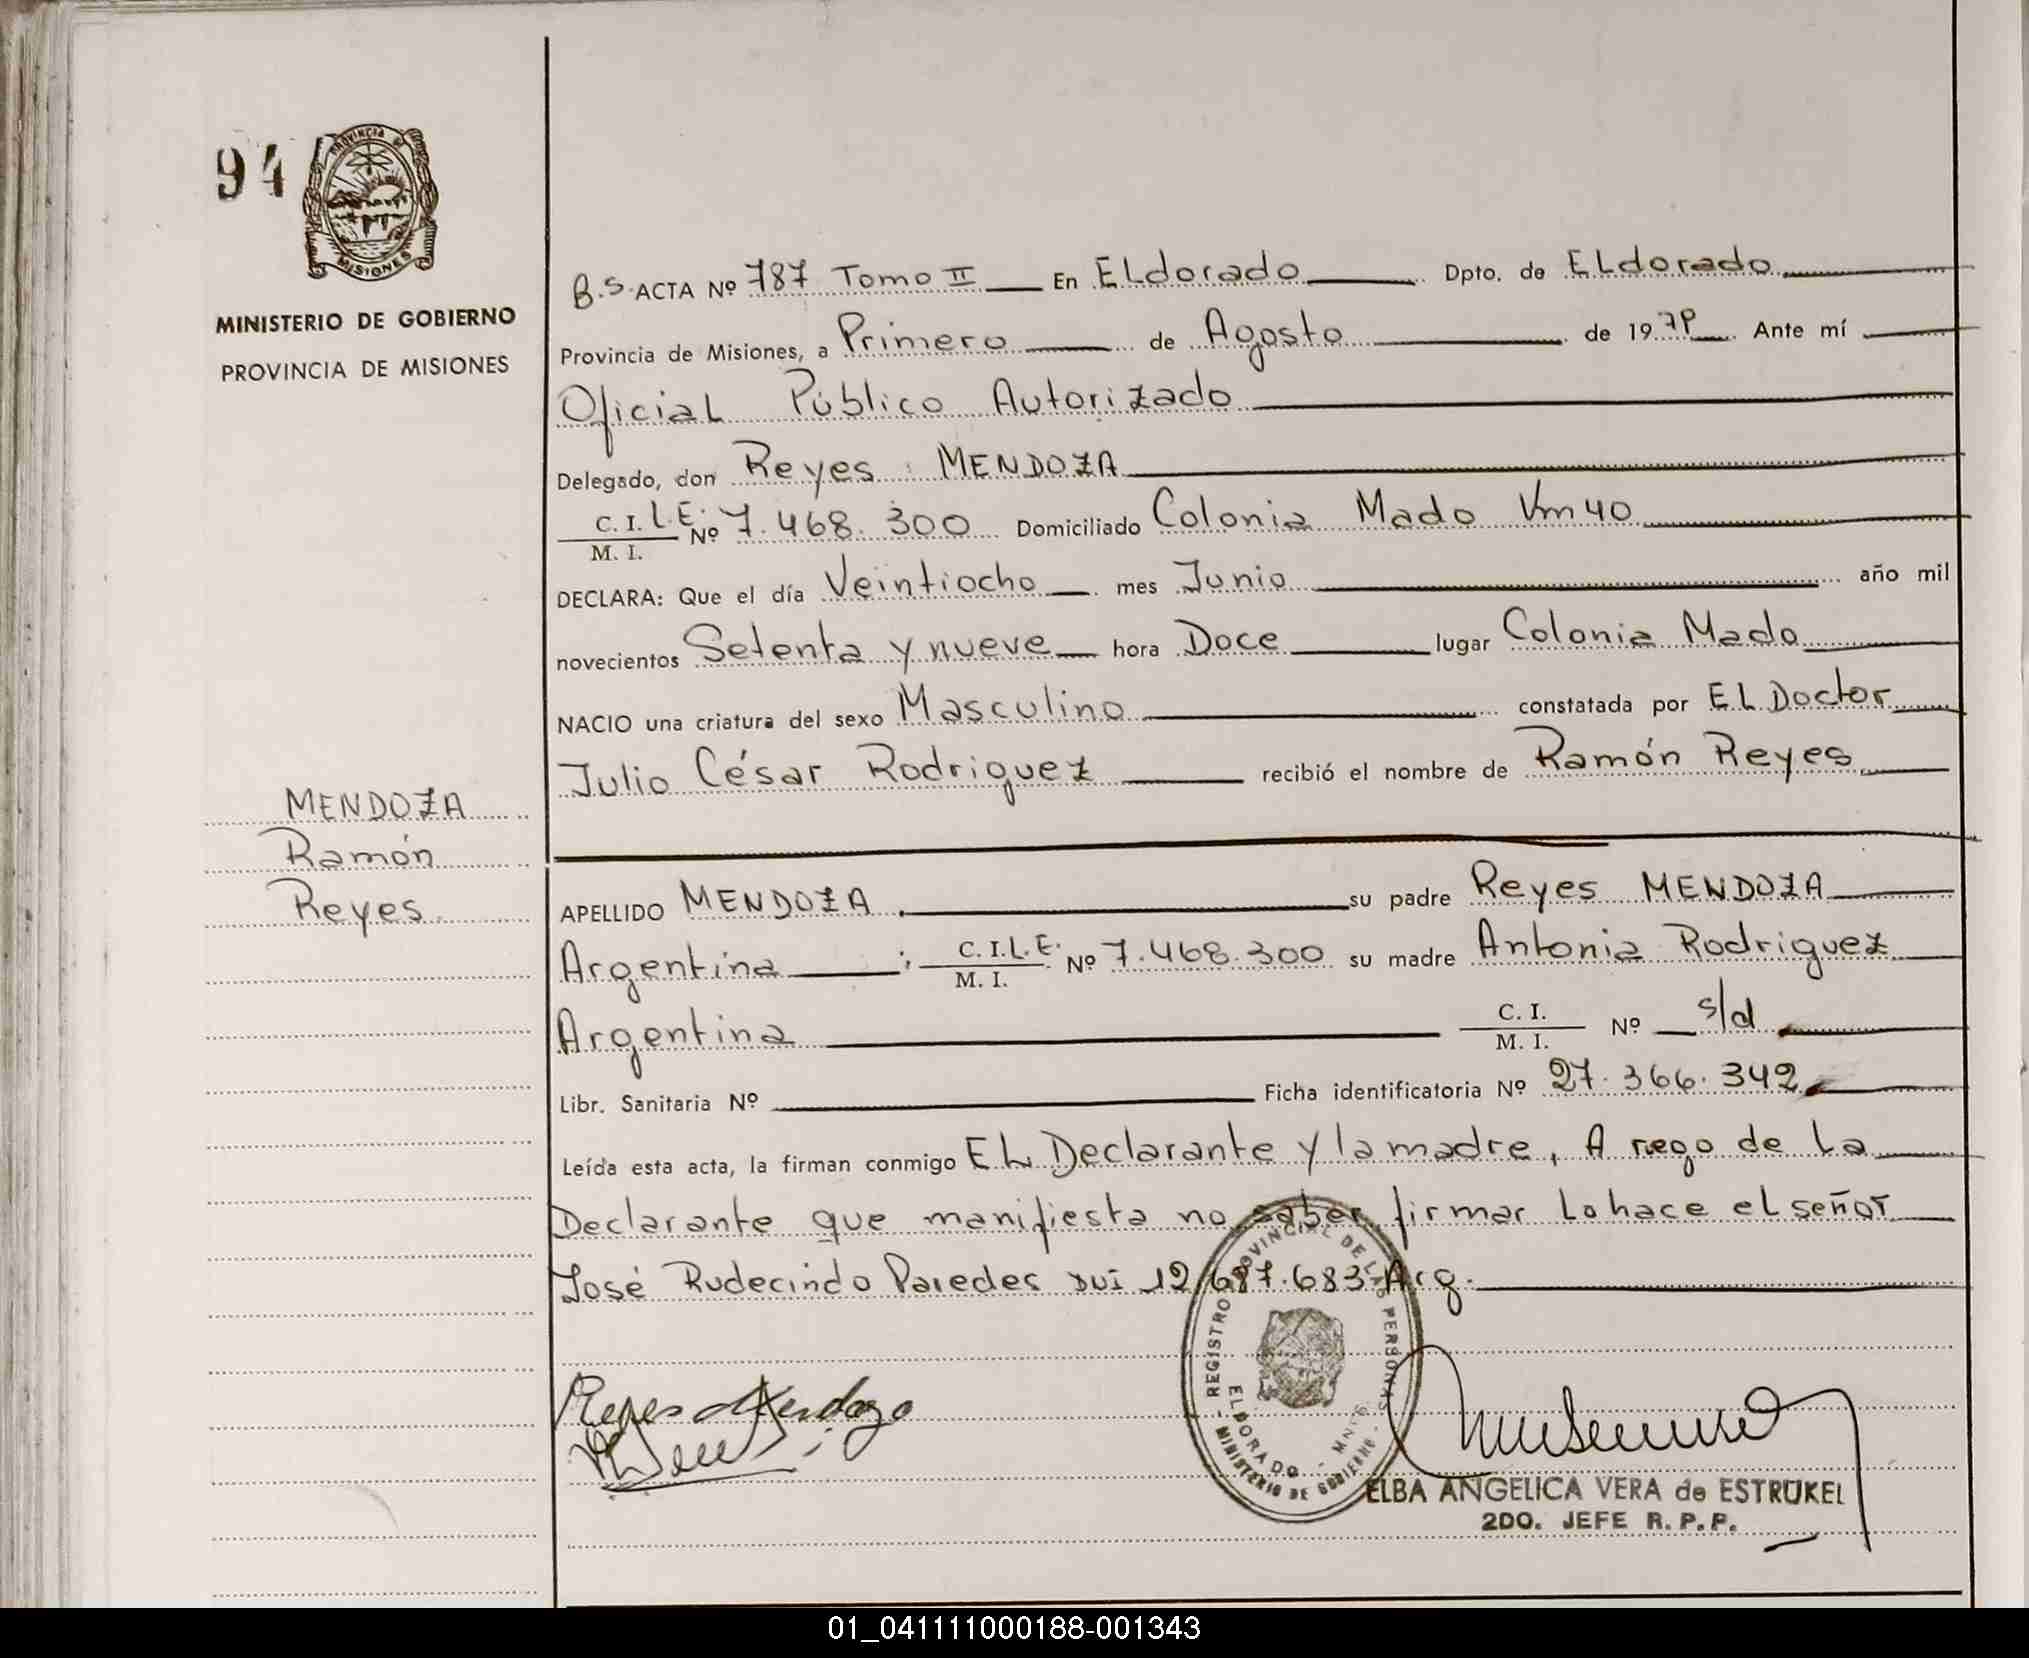 94
PROVINCIA DE
MISIONES
MINISTERIO DE GOBIERNO
PROVINCIA DE MISIONES
B.S. ACTA Nº 787 Tomo II En ELdorado Dpto. de ELdorado
Provincia de Misiones, a Primero de Agosto de 1979 Ante mí
Oficial Público Autorizado
Delegado, don Reyes MENDOZA
C. I. L.E. Nº 7.468.300 Domiciliado Colonia Mado Km 40
M. I.
DECLARA: Que el día Veintiocho mes Junio año mil
novecientos Setenta y nueve hora Doce lugar Colonia Mado
NACIO una criatura del sexo Masculino constatada por EL Doctor
Julio César Rodriguez recibió el nombre de Ramón Reyes
MENDOZA
Ramón
Reyes
APELLIDO MENDOZA su padre Reyes MENDOZA
Argentina ; C. I. L.E. Nº 7.468.300 su madre Antonia Rodriguez
M. I.
Argentina C. I. Nº s/d
M. I.
Libr. Sanitaria Nº Ficha identificatoria Nº 27.366.342
Leída esta acta, la firman conmigo EL Declarante y la madre, A ruego de La
Declarante que manifiesta no saber firmar Lo hace el señor
José Rudecindo Paredes DNI 12.687.683 Arg.
REGISTRO PROVINCIAL DE LAS PERSONAS
ELDORADO - Mnes.
- MINISTERIO DE GOBIERNO -
Reyes Mendoza
ELBA ANGELICA VERA de ESTRUKEL
2DO. JEFE R. P. P.
01_041111000188-001343